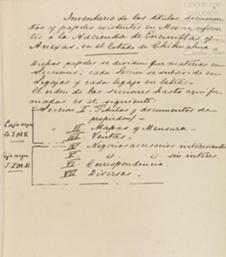 CENTRO DE
Inventario de los titulos, documen
tos y papeles existentes en Mexico referen
tes á la Hacienda de Encinillas y
Anexas, en el Estado de Chihuahua
Dichos papeles se dividen por materias en
Secciones; cada Seccion se subdivide en
legajos y cada legajo en letras.
El orden de las secciones hasta aqui for
madas es el siguiente
Seccion I. Titulos y documentos de
propiedad
II Mapas y Mensura
III Ventas.
Caja negra
IV Negocios accesorios interesantes
V sin interes.
Caja negra
VI Correspondencia
VII Diversos.